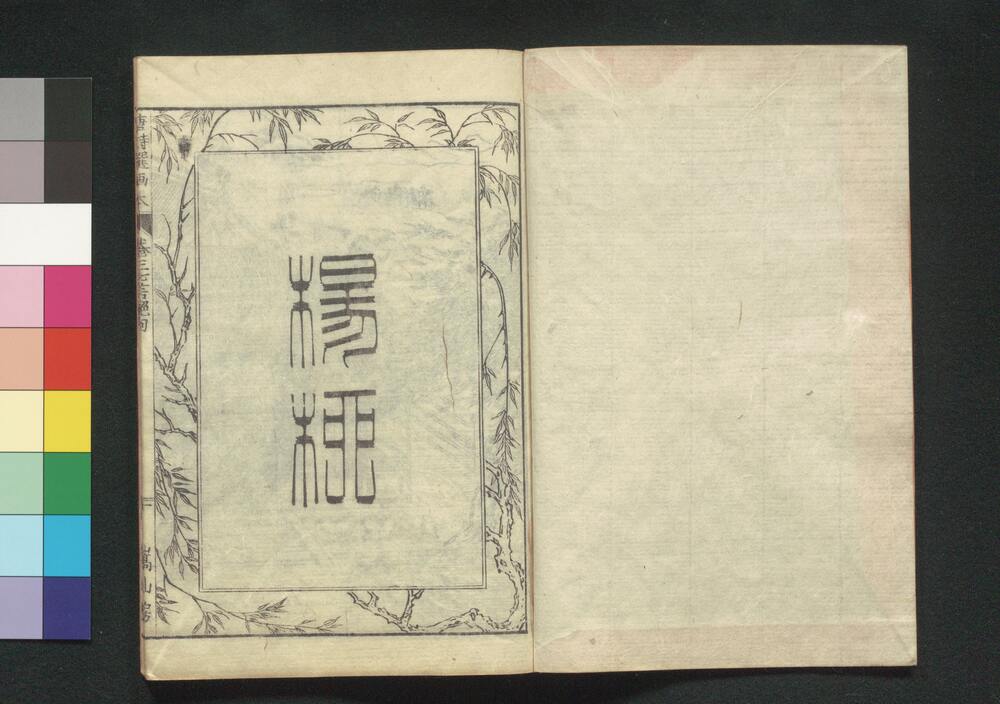 楊柳
唐詩選画本 巻三 七言絶句 嵩山房